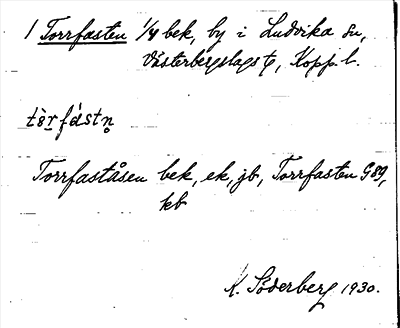 1 Torrfasten 1/4 bek, by i Ludvika sn,
Västerbergslags tg, Kopp. l.
tòrfástn̥
Torrfaståsen bek, ek, jb, Torrfasten G 89,
kb
K. Söderberg 1930.